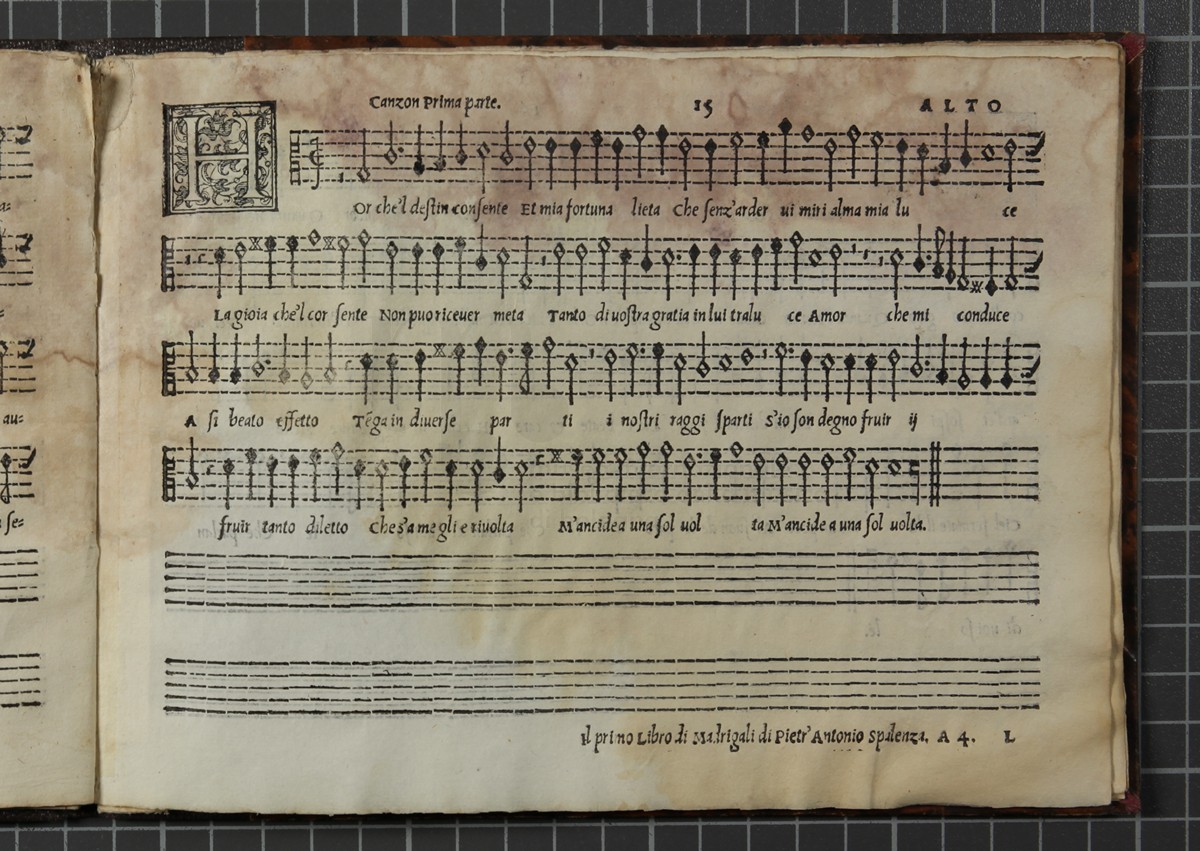 Canzon Prima parte. 15 ALTO
a=
F Or che'l destin consente Et mia fortuna lieta Che senz'arder ui miri alma mia lu ce
La gioia che'l cor sente Non puo riceuer meta Tanto di uostra gratia in lui tralu ce Amor che mi conduce
au= A si beato effetto Tēga in diuerse par ti i nostri raggi sparti S'io son degno fruir ij
se= fruir tanto diletto Che s'a me gli e riuolta M'ancide a una sol uol ta M'ancide a una sol uolta.
Il primo Libro di Madrigali di Pietr'Antonio Spalenza. A 4. L